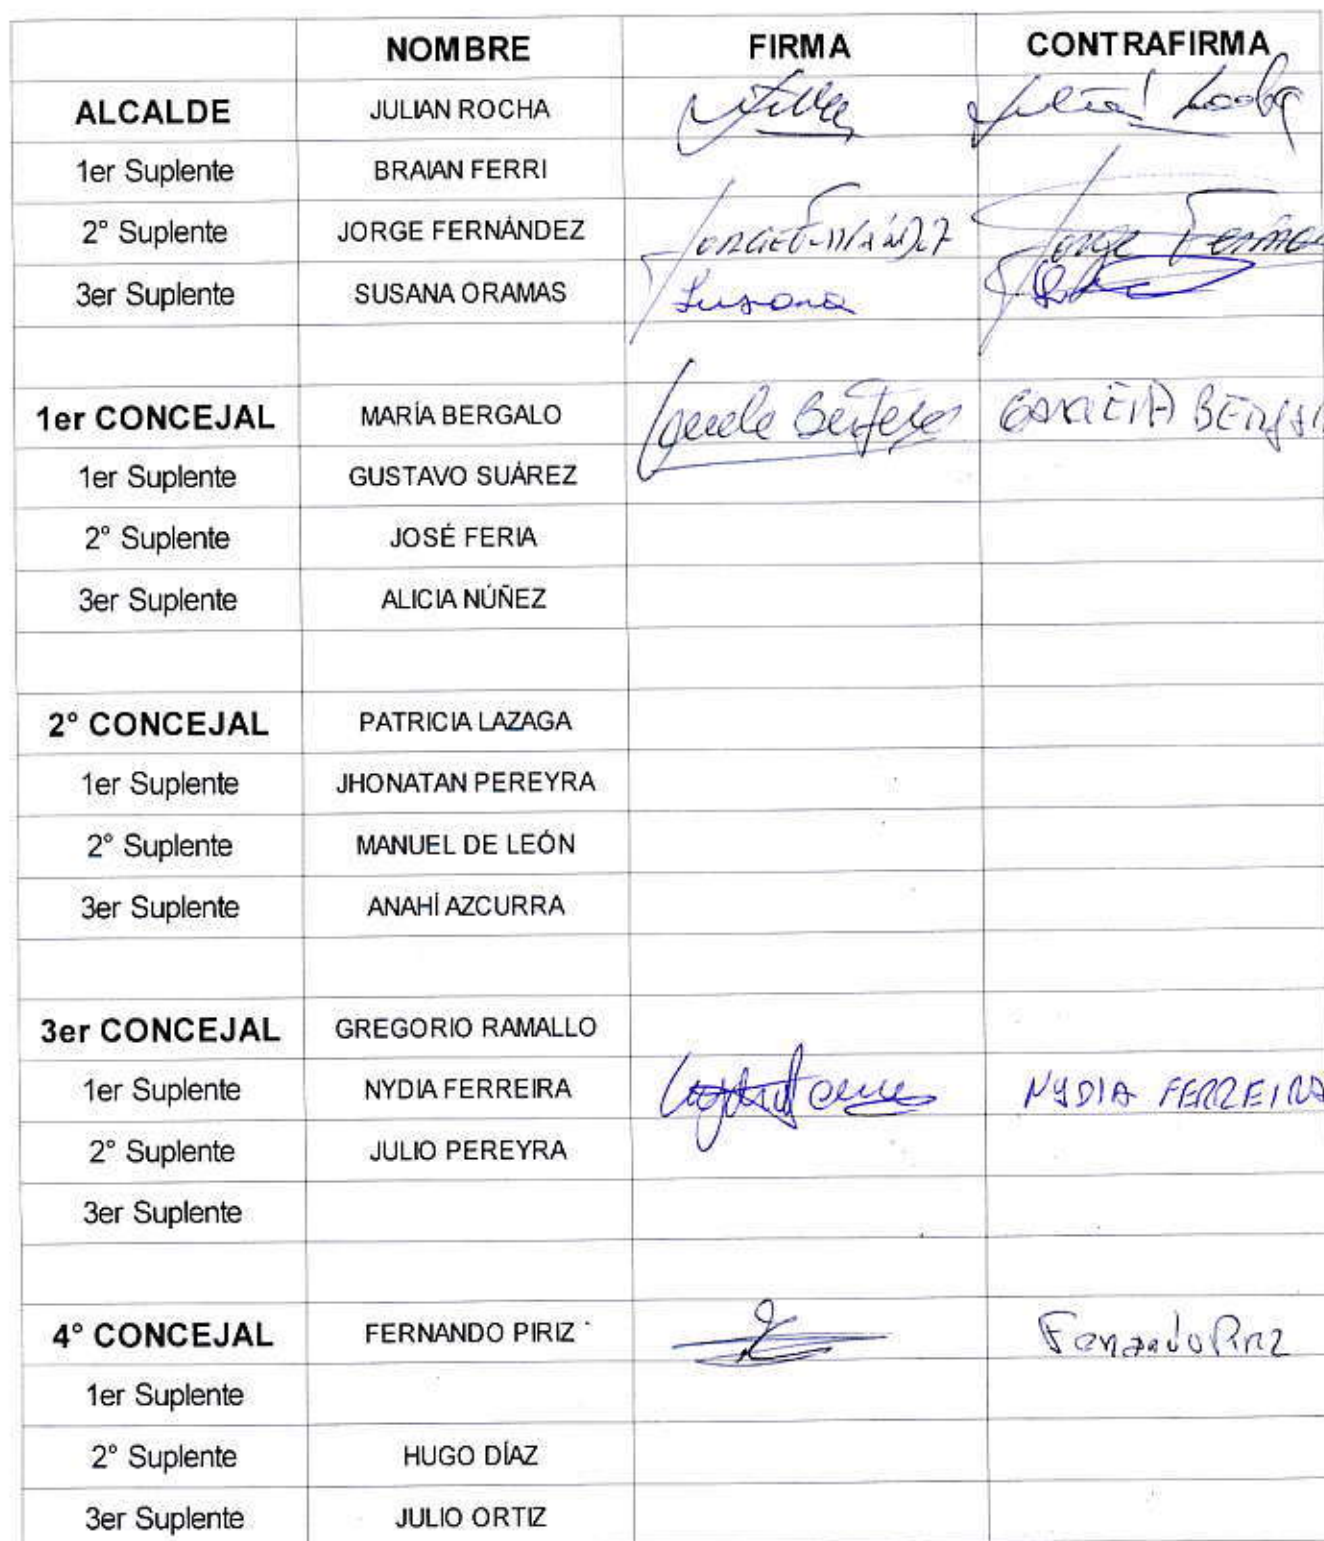 NOMBRE FIRMA CONTRAFIRMA
ALCALDE JULIAN ROCHA
1er Suplente BRAIAN FERRI
2° Suplente JORGE FERNÁNDEZ Jorge
3er Suplente SUSANA ORAMAS Susana
1er CONCEJAL MARÍA BERGALO
1er Suplente GUSTAVO SUÁREZ
2° Suplente JOSÉ FERIA
3er Suplente ALICIA NÚÑEZ
2° CONCEJAL PATRICIA LAZAGA
1er Suplente JHONATAN PEREYRA
2° Suplente MANUEL DE LEÓN
3er Suplente ANAHÍ AZCURRA
3er CONCEJAL GREGORIO RAMALLO
1er Suplente NYDIA FERREIRA NYDIA FERREIRA
2° Suplente JULIO PEREYRA
3er Suplente
4° CONCEJAL FERNANDO PIRIZ Fernando Piriz
1er Suplente
2° Suplente HUGO DÍAZ
3er Suplente JULIO ORTIZ